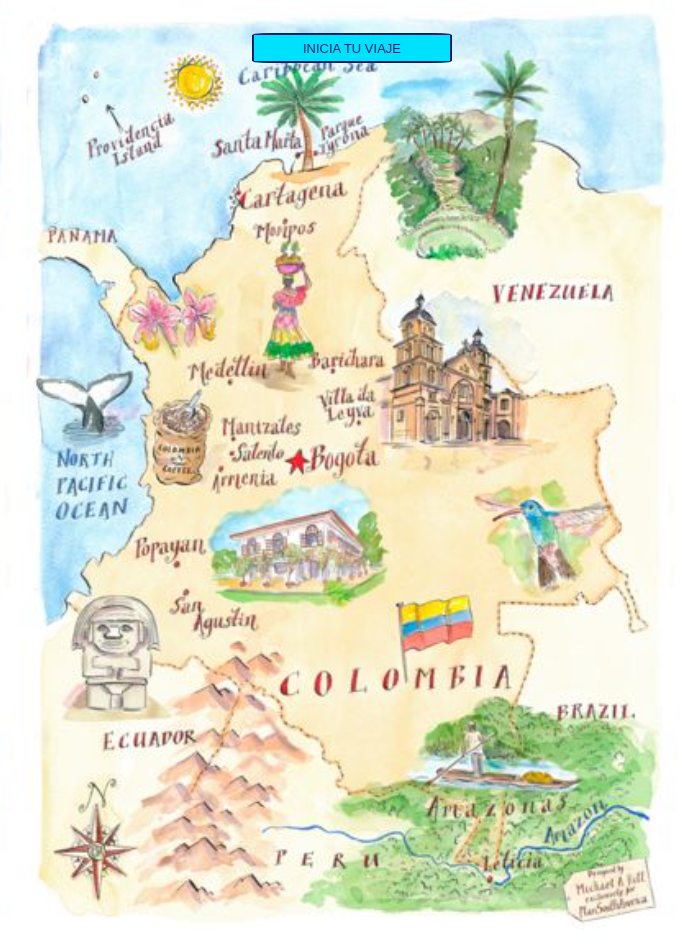 INICIA TU VIAJE
Caribbean Sea
Providencia
Island
Santa Marta
Parque
Tyrona
Cartagena
Mompos
PANAMA
VENEZUELA
Medellin
Barichara
Villa da
Leyva
Manizales
Salento
Bogota
Armenia
COLOMBIA
COFFEE
NORTH
PACIFIC
OCEAN
Popayan
San
Agustin
COLOMBIA
BRAZIL
ECUADOR
Amazonas
Amazon
N
PERU
Leticia
Designed by
Michael A Hill
exclusively for
PlanSouthAmerica